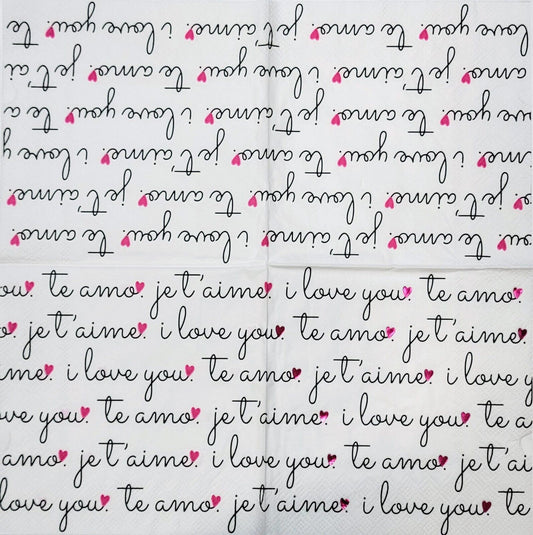 love you. te amo. je t'aime. i love you. te
amo. je t'aime. i love you. te amo. je t'ai
ve you. te amo. je t'aime. i love you. te a
me. i love you. te amo. je t'aime. i love y
o. je t'aime. i love you. te amo. je t'aime.
ou. te amo. je t'aime. i love you. te amo.
ou. te amo. je t'aime. i love you. te amo.
o. je t'aime. i love you. te amo. je t'aime.
me. i love you. te amo. je t'aime. i love y
ve you. te amo. je t'aime. i love you. te a
amo. je t'aime. i love you. te amo. je t'ai
love you. te amo. je t'aime. i love you. te